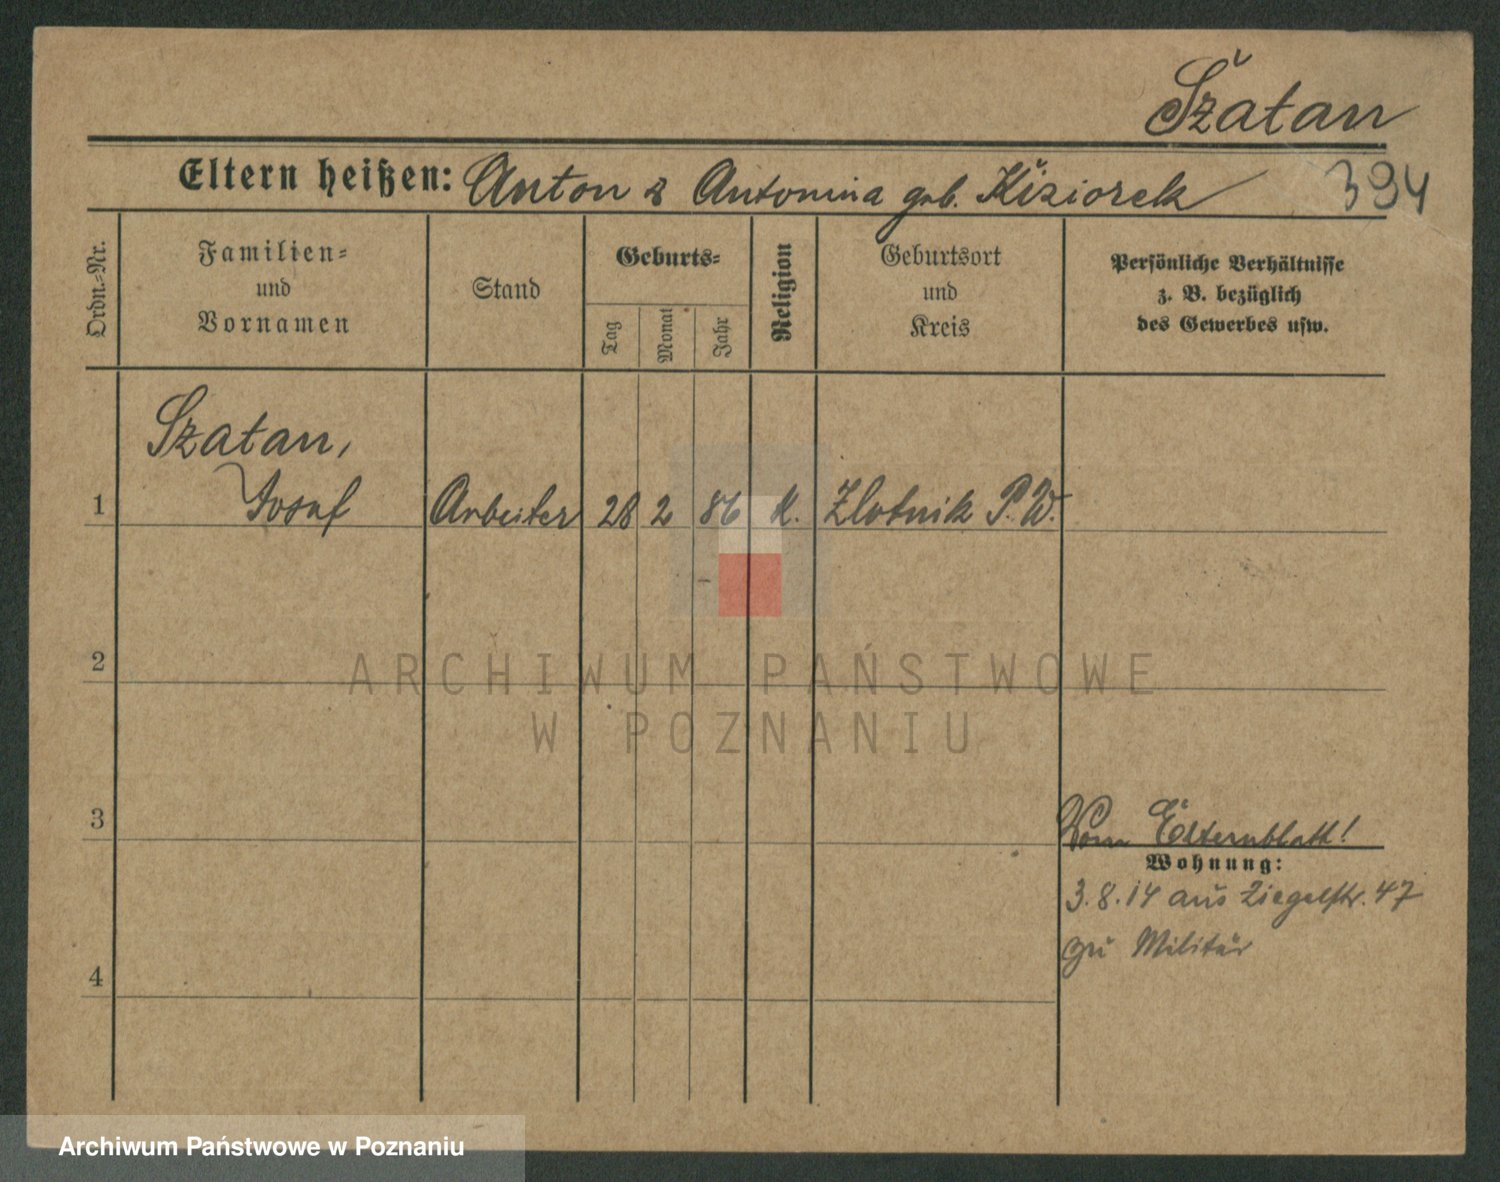 Szatan
Eltern heißen: Anton & Antonina geb. Kiziorek
394
Ordn.-Nr.
Familien-
und
Vornamen
Stand
Geburts-
Tag
Monat
Jahr
Religion
Geburtsort
und
Kreis
Persönliche Verhältnisse
z. B. bezüglich
des Gewerbes usw.
Szatan,
1 Josef Arbeiter 28 2 86 K. Zlotnik P. W.
2
ARCHIWUM PAŃSTWOWE
W POZNANIU
3
Vom Elternblatt!
Wohnung:
3.8.14 aus Ziegelstr. 47
zu Militär
4
Archiwum Państwowe w Poznaniu